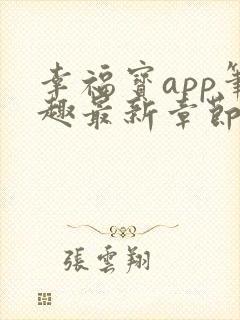 幸福寶app筆
趣最新章節
張雲翔